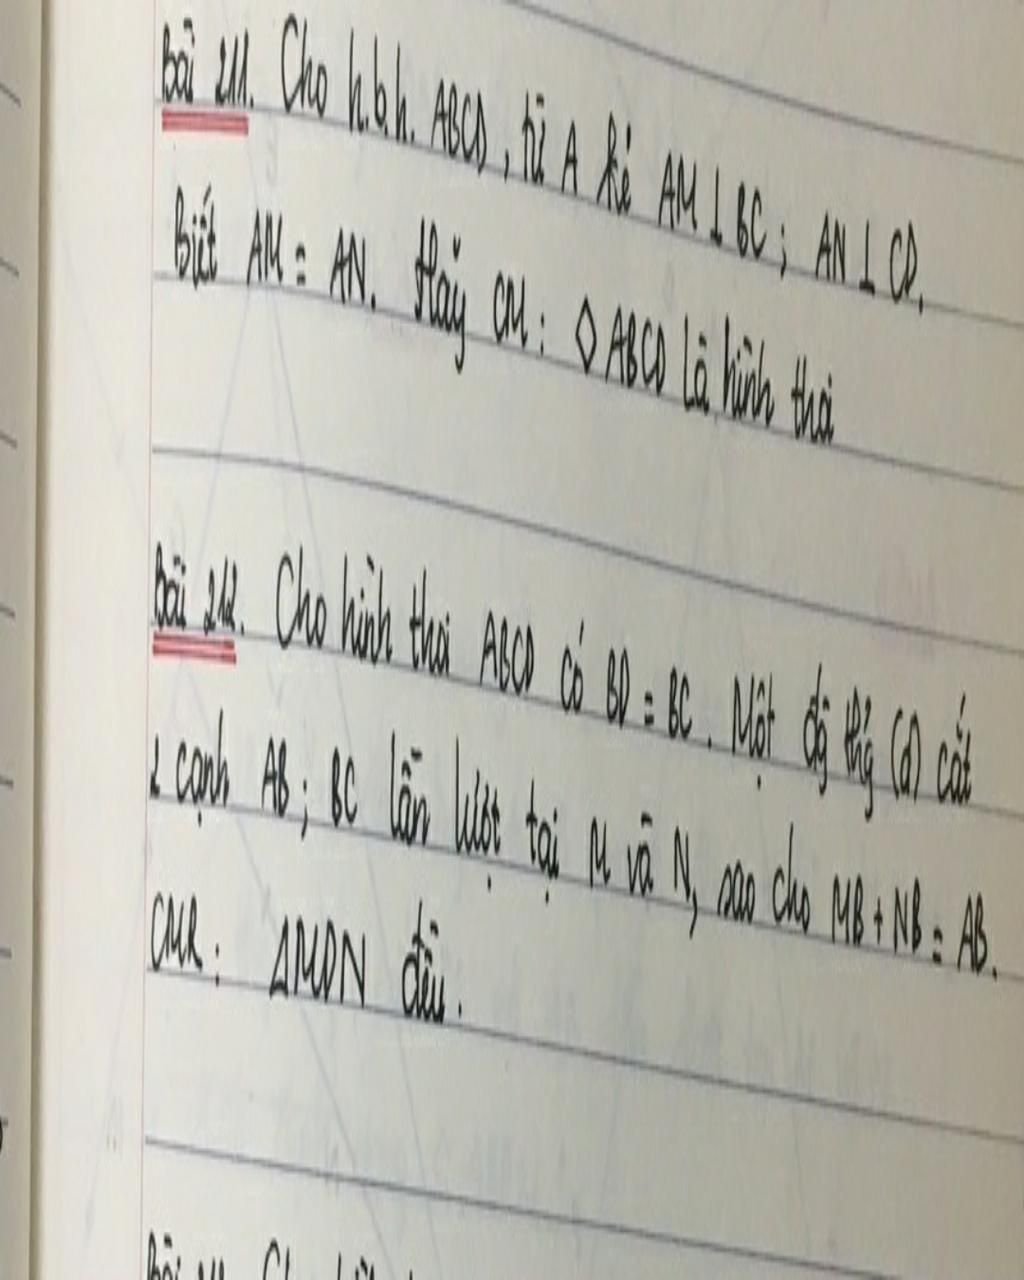 Bài 211. Cho h.b.h. ABCD, từ A kẻ AM ⊥ BC; AN ⊥ CD.
Biết AM = AN. Hãy CM: ◇ABCD là hình thoi
Bài 212. Cho hình thoi ABCD có BD = BC. Một đg thg (d) cắt
2 cạnh AB; BC lần lượt tại M và N, sao cho MB + NB = AB.
CMR: ΔMDN đều.
Bài